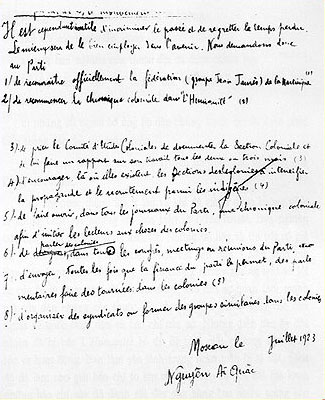 Il est cependant inutile d'incriminer le passé et de regretter le temps perdu.
Le mieux sera de le bien employer dans l'avenir. Nous demandons donc
au Parti
1/ de reconnaître officiellement la fédération (groupe Jean Jaurès) de la Martinique
2/ de recommencer la chronique coloniale dans "l'Humanité" (2)
3/ de prier le Comité d'Etudes Coloniales de documenter la Section Coloniale et
de lui faire un rapport sur son travail tous les deux ou trois mois (3)
4/ d'encourager, là où elles existent les sections des colonies à intensifier
la propagande et le recrutement parmi les indigènes (4)
5/ de faire ouvrir, dans tous les journaux du Parti, une chronique coloniale
afin d'initier les lecteurs aux choses des colonies.
6/ de parler des colonies dans tous les congrès, meetings ou réunions du Parti,
7/ d'envoyer, toutes les fois que la finance du parti le permet, des parle
mentaires faire des tournées dans les colonies (5)
8/ d'organiser des syndicats ou former des groupes similaires dans les colonies
Moscou le Juillet 1923
Nguyễn Ái Quấc